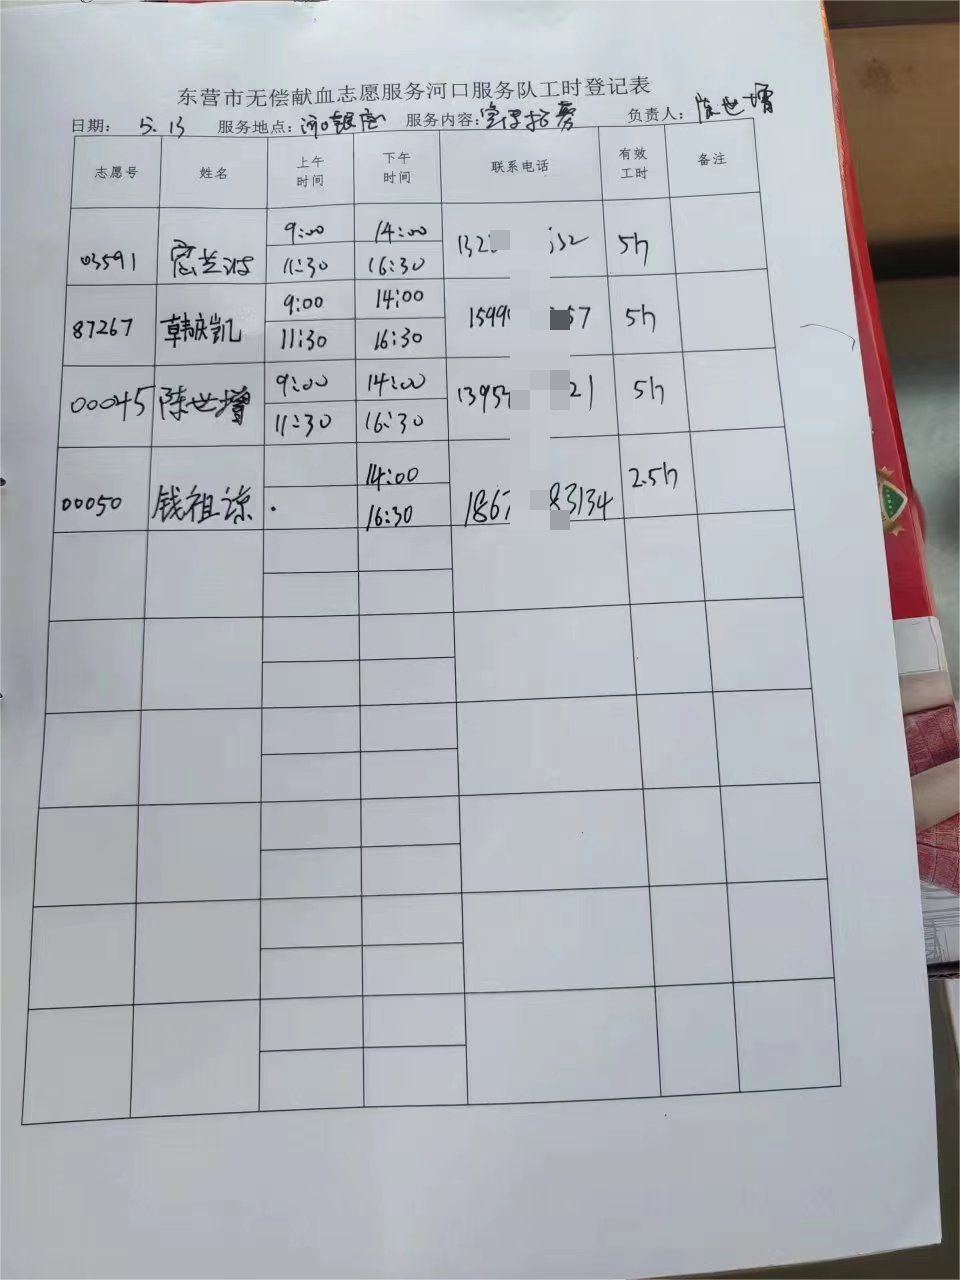 东营市无偿献血志愿服务河口服务队工时登记表
日期: 5.13 服务地点: 河口银座 服务内容: 宣传招募 负责人: 陈世增
志愿号 姓名 上午时间 下午时间 联系电话 有效工时 备注
03591 9:00 14:00 132 32 5h
11:30 16:30
87267 韩庆凯 9:00 14:00 1599 57 5h
11:30 16:30
00045 陈世增 9:00 14:00 1395 21 5h
11:30 16:30
00050 钱祖谅 14:00 186 83134 2.5h
16:30